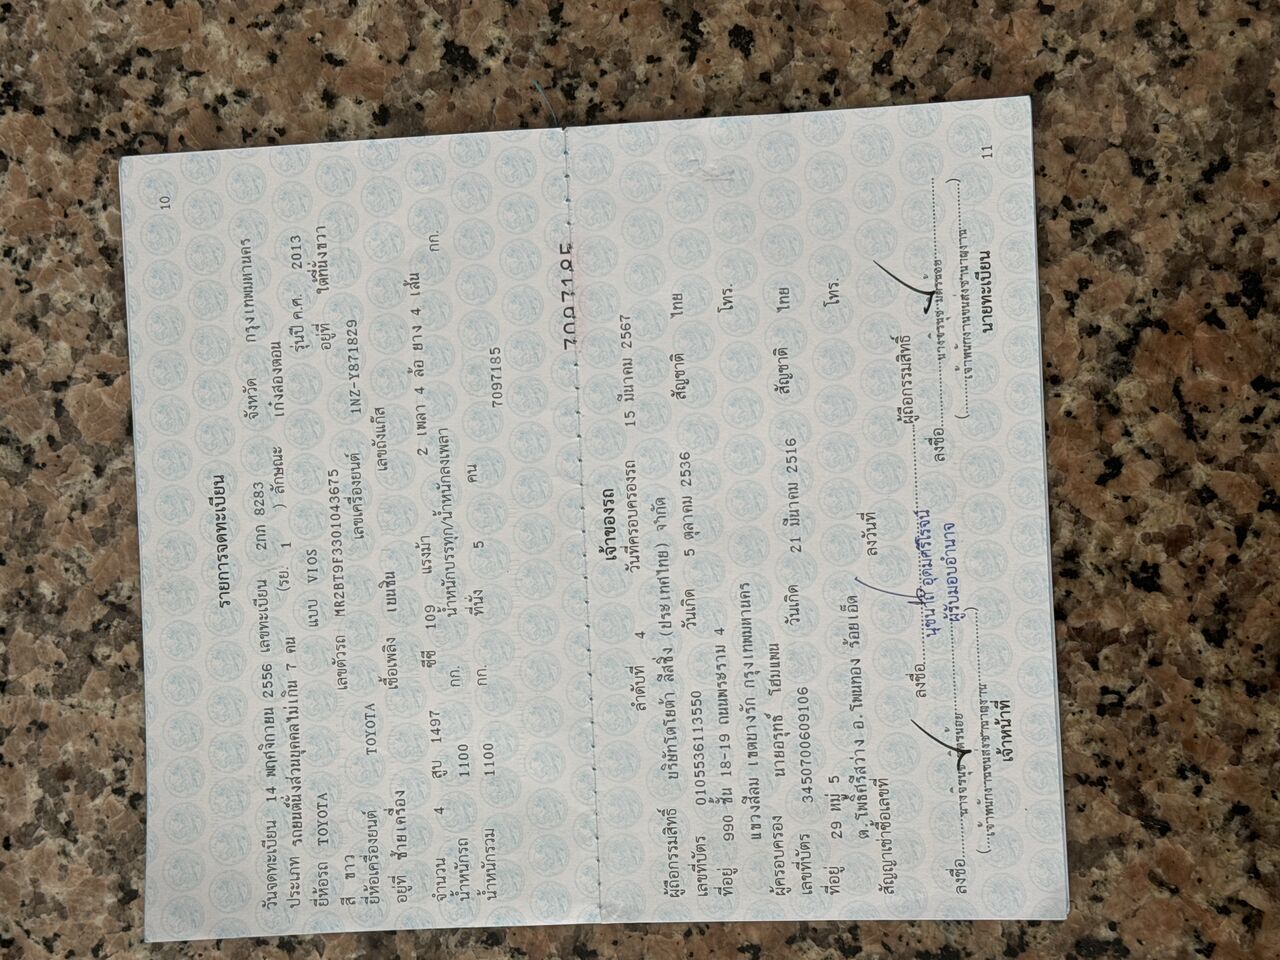 10
รายการจดทะเบียน
วันจดทะเบียน 14 พฤศจิกายน 2556 เลขทะเบียน 2กก 8283 จังหวัด กรุงเทพมหานคร
ประเภท รถยนต์นั่งส่วนบุคคลไม่เกิน 7 คน (รย. 1 ) ลักษณะ เก๋งสองตอน
ยี่ห้อรถ TOYOTA แบบ VIOS รุ่นปี ค.ศ. 2013
สี ขาว เลขตัวรถ MR2BT9F3301043675 อยู่ที่ ใต้ที่นั่งขวา
ยี่ห้อเครื่องยนต์ TOYOTA เลขเครื่องยนต์ 1NZ-Y871829
อยู่ที่ ซ้ายเครื่อง เชื้อเพลิง เบนซิน เลขถังแก๊ส
จำนวน 4 สูบ 1497 ซีซี 109 แรงม้า 2 เพลา 4 ล้อ ยาง 4 เส้น
น้ำหนักรถ 1100 กก. น้ำหนักบรรทุก/น้ำหนักลงเพลา กก.
น้ำหนักรวม 1100 กก. ที่นั่ง 5 คน
7097185
เจ้าของรถ
ลำดับที่ 4 วันที่ครอบครองรถ 15 มีนาคม 2567
ผู้ถือกรรมสิทธิ์ บริษัทโตโยต้า ลีสซิ่ง (ประเทศไทย) จำกัด
เลขที่บัตร 0105536113550 วันเกิด 5 ตุลาคม 2536 สัญชาติ ไทย
ที่อยู่ 990 ชั้น 18-19 ถนนพระราม 4 โทร.
แขวงสีลม เขตบางรัก กรุงเทพมหานคร
ผู้ครอบครอง นายอรุทธ์ โฮมแพน
เลขที่บัตร 3450700609106 วันเกิด 21 มีนาคม 2516 สัญชาติ ไทย
ที่อยู่ 29 หมู่ 5 โทร.
ต.โพธิ์ศรีสว่าง อ.โพนทอง ร้อยเอ็ด
สัญญาเช่าซื้อเลขที่ ลงวันที่
ลงชื่อ ผู้ถือกรรมสิทธิ์
ผู้รับมอบอำนาจ
ลงชื่อ ลงชื่อ
(...เจ้าพนักงานขนส่งชำนาญงาน) (...เจ้าพนักงานขนส่งชำนาญงาน)
เจ้าหน้าที่ นายทะเบียน
11